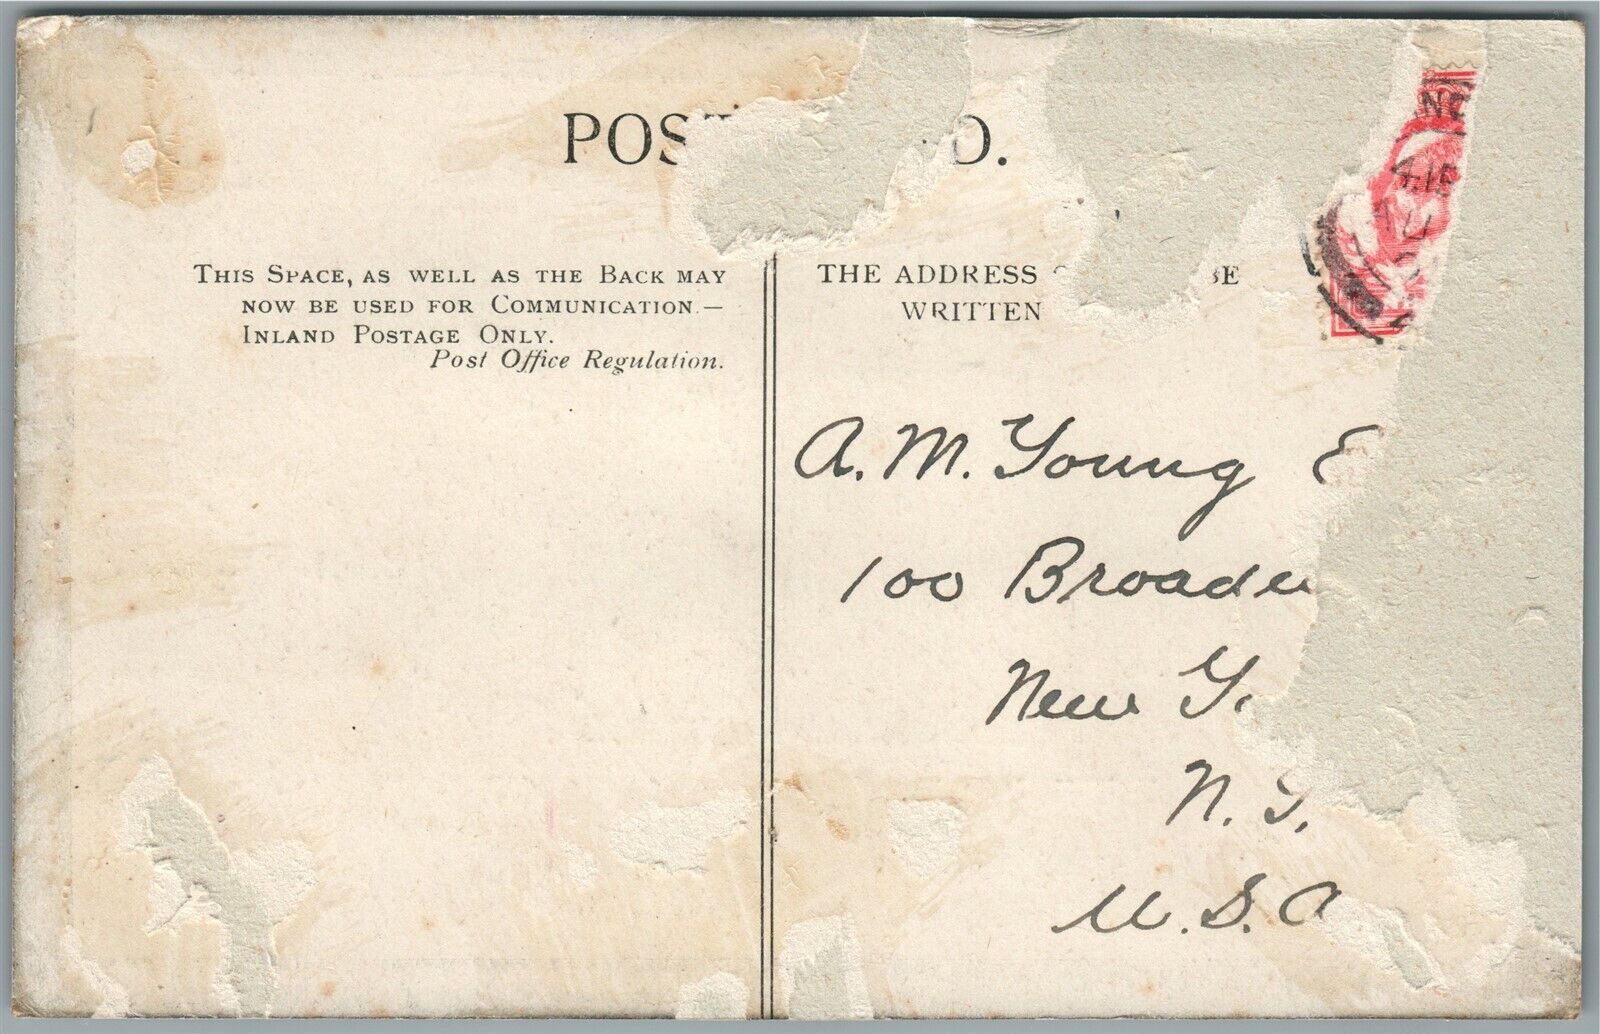 POST D.
THIS SPACE, AS WELL AS THE BACK MAY
NOW BE USED FOR COMMUNICATION.—
INLAND POSTAGE ONLY.
Post Office Regulation.
THE ADDRESS BE
WRITTEN
A. M. Young E
100 Broadw
New Y.
N. Y.
U. S. A